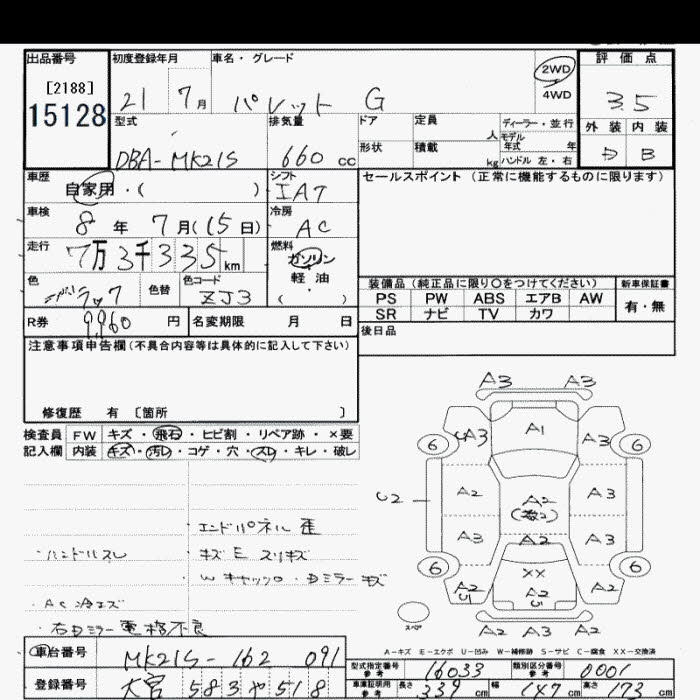 出品番号
[2188]
15128
初度登録年月 車名・グレード
21 7月 パレット G
2WD
4WD
評価点
3.5
外装 内装
D B
型式 排気量 ドア 定員 人 ディーラー・並行
モデル
年式 年
DBA-MK21S 660cc 形状 積載 kg ハンドル 左・右
車歴 自家用・( )
シフト IAT
セールスポイント(正常に機能するものに限ります)
車検 8年 7月(15日)
冷房 AC
走行 7万3千335km
燃料 ガソリン
軽油
( )
色 色替 色コード ZJ3
装備品(純正品に限り○をつけてください) 新車保証書
PS PW ABS エアB AW 有・無
SR ナビ TV カワ
R券 9,960円 名変期限 月 日
後日品
注意事項申告欄(不具合内容等は具体的に記入して下さい)
修復歴 有 〔箇所 〕
検査員 FW キズ・飛石・ヒビ割・リペア跡・×要
記入欄 内装 キズ・汚レ・コゲ・穴・スレ・キレ・破レ
・エンドパネル歪
・ハンドルスレ ・キズ E スリキズ
・AC冷エズ
・右Dミラー電格不良
A3 A3
A1
A3 A3
6 6
U2
A2 A2 A3
A3 A2 A3
6 6
XX
A2 U1 A2 U1 A2
スペア
A2 A3 A2
A-キズ E-エクボ U-凹み W-補修跡 S-サビ C-腐食 XX-交換済
車台番号 MK21S-162 091
型式指定番号
参考 16033
類別区分番号
参考 0001
登録番号 大宮 583 や 518
車庫証明用
参考 長さ 339cm 幅 147cm 高さ 173cm